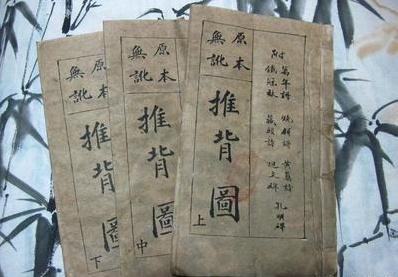 萬年詩 燒餅詩 黃蘗詩 孔明碑
附
鐵冠數 藏頭詩
原本
無訛
推背圖
上
原本
無訛
推背圖
中
原本
無訛
推背圖
下